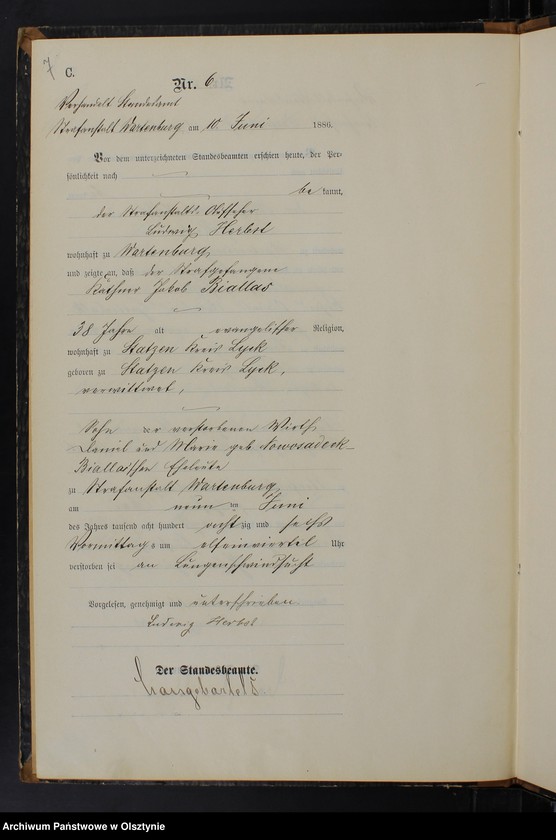 7
C.
Nr. 6
Verhandelt Standesamt
Strafanstalt Wartenburg am 10. Juni 1886.
Vor dem unterzeichneten Standesbeamten erschien heute, der Per-
sönlichkeit nach
be kannt,
der Strafanstalts-Aufseher
Ludwig Herbst
wohnhaft zu Wartenburg
und zeigte an, daß der Strafgefangene
Käthner Jakob Biallas
38 Jahre alt evangelischer Religion,
wohnhaft zu Statzen Kreis Lyck
geboren zu Statzen Kreis Lyck,
verwittwet,
Sohn der verstorbenen Wirth
Daniel und Marie geb. Nowosadeck-
Biallas'schen Eheleute
zu Strafanstalt Wartenburg
am neun ten Juni
des Jahres tausend acht hundert acht zig und sechs
Vormittags um elfeinviertel Uhr
verstorben sei an Lungenschwindsucht
Vorgelesen, genehmigt und unterschrieben
Ludwig Herbst
Der Standesbeamte.
Archiwum Państwowe w Olsztynie